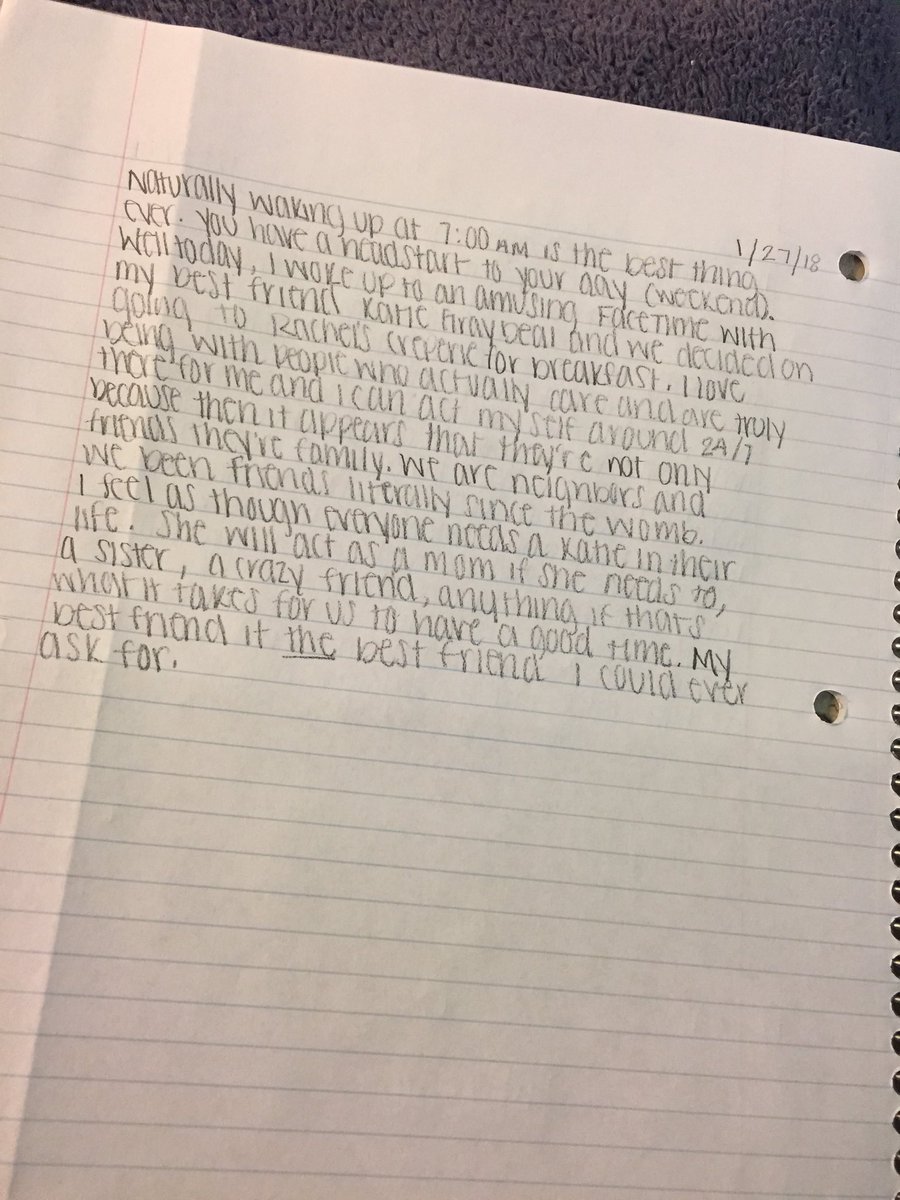 1/27/18
Naturally waking up at 7:00 AM is the best thing
ever. You have a headstart to your day (weekend).
Well today, I woke up to an amusing FaceTime with
my best friend Katie Graybeal and we decided on
going to Rachel's Creperie for breakfast. I love
being with people who actually care and are truly
there for me and I can act myself around 24/7
because then it appears that they're not only
friends they're family. We are neighbors and
we been friends literally since the womb.
I feel as though everyone needs a Katie in their
life. She will act as a mom if she needs to,
a sister, a crazy friend, anything if thats
what it takes for us to have a good time. My
best friend it the best friend I could ever
ask for.